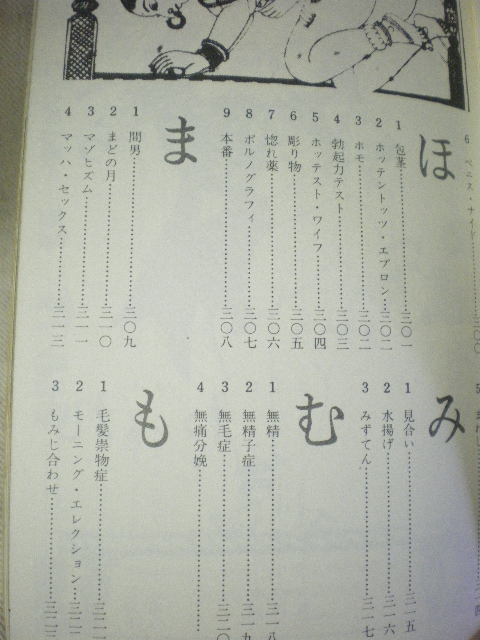 6 ペニス・サイド……三〇〇
ほ
1 包茎……三〇一
2 ホッテントッツ・エプロン……三〇二
3 ホモ……三〇二
4 勃起力テスト……三〇三
5 ホッテスト・ワイフ……三〇四
6 彫り物……三〇五
7 惚れ薬……三〇六
8 ポルノグラフィ……三〇七
9 本番……三〇八
ま
1 間男……三〇九
2 まどの月……三一〇
3 マゾヒズム……三一一
4 マッハ・セックス……三一三
み
1 見合い……三一五
2 水揚げ……三一六
3 みずてん……三一七
む
1 無精……三一八
2 無精子症……三一九
3 無毛症……三二〇
4 無痛分娩……
も
1 毛髪崇物症……三二一
2 モーニング・エレクション……三二二
3 もみじ合わせ……三二三